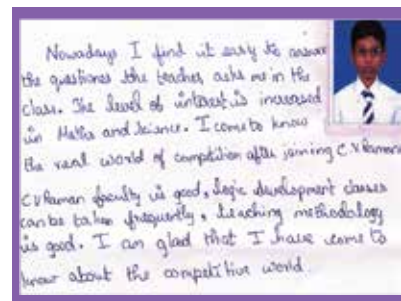 Nowadays I find it easy to answer
the questiones the teacher asks me in the
class. The level of interest is increased
in Maths and Science. I come to know
the real world of compition after joining C.V Raman.
C V Raman faculty is good, logic development classes
can be taken frequently, teaching methodology
is good. I am glad that I have come to
know about the competitive world.